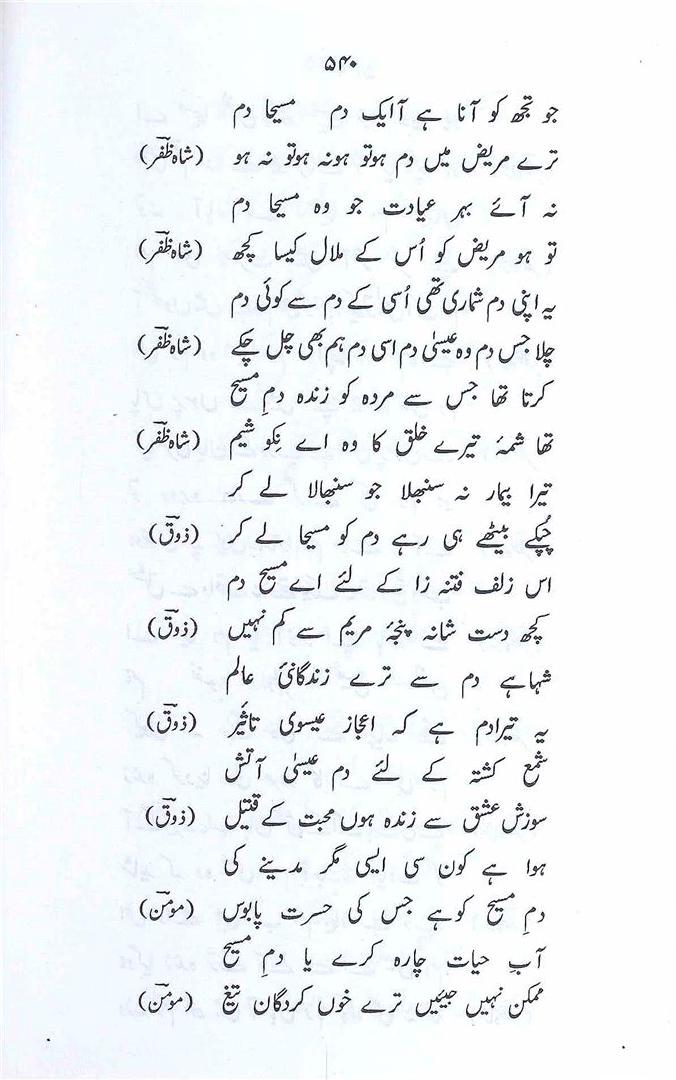 ۵۴۰
جو تجھ کو آنا ہے آ ایک دم مسیحا دم
ترے مریض میں دم ہوتو ہو نہ ہوتو نہ ہو (شاہ ظفرؔ)
نہ آئے بہر عیادت جو وہ مسیحا دم
تو ہو مریض کو اُس کے ملال کیسا کچھ (شاہ ظفرؔ)
یہ اپنی دم شماری تھی اُسی کے دم سے کوئی دم
چلا جس دم وہ عیسیٰ دم اسی دم ہم بھی چل چکے (شاہ ظفرؔ)
کرتا تھا جس سے مردہ کو زندہ دمِ مسیح
تھا شمۂ تیرے خلق کا وہ اے نِکو شیم (شاہ ظفرؔ)
تیرا بیمار نہ سنبھلا جو سنبھالا لے کر
چُپکے بیٹھے ہی رہے دم کو مسیحا لے کر (ذوقؔ)
اس زلف فتنہ زا کے لئے اے مسیح دم
کچھ دست شانہ پنجۂ مریم سے کم نہیں (ذوقؔ)
شہا ہے دم سے ترے زندگانیٔ عالم
یہ تیرا دم ہے کہ اعجاز عیسوی تاثیر (ذوقؔ)
شمع کشتہ کے لئے دم عیسیٰ آتش
سوزش عشق سے زندہ ہوں محبت کے قتیل (ذوقؔ)
ہوا ہے کون سی ایسی مگر مدینے کی
دمِ مسیح کو ہے جس کی حسرت پابوس (مومنؔ)
آبِ حیات چارہ کرے یا دمِ مسیح
ممکن نہیں جیئیں ترے خوں کردگان تیغ (مومنؔ)